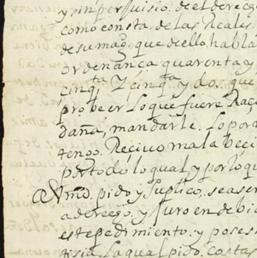 y sin perjuisio. de el derec
como consta. de las Reales
de su mag.d que de ello, habla
ordenança quarenta y
cinq.ta y cinq.ta y dos. que
probeer lo que fuere
daña, mandarle. lo por
tenos. Recivo mala
por todo lo qual y por lo que
A Vmd. pido y suplico. sea ser
a derecho. y Juro en debi
este pedimiento. y
lo qual pido. costas